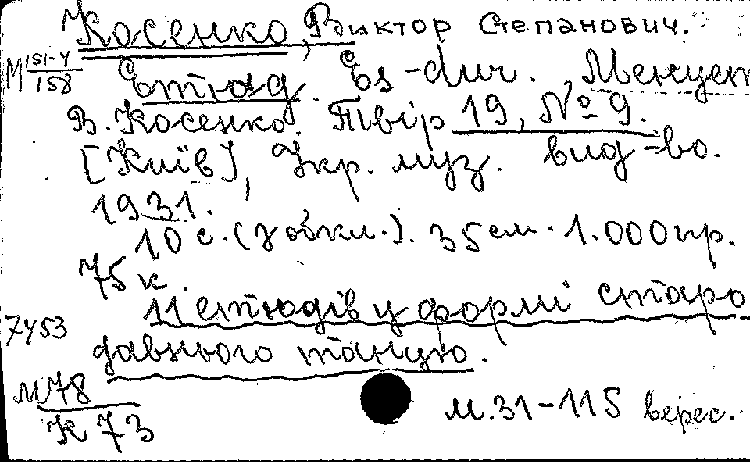 Косенко, Виктор Степанович.
М 151-4
158
Етюд. Es-dur. Менует
В. Косенко. Твір 19, № 9.
[Київ], Укр. муз. вид-во.
1931.
10 с. (з обкл.). 35 см. 1.000 пр.
75 к
11 етюдів у формі старо
7453
давнього танцю.
М78
К 73
М.31-115 верес.